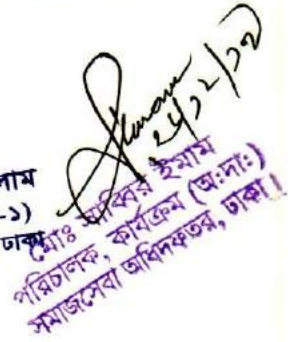 ২৪/১২/১৮
লাম
-১)
ঢাকা
মোঃ সাব্বির ইমাম
পরিচালক, কার্যক্রম (অ:দা:)
সমাজসেবা অধিদফতর, ঢাকা।